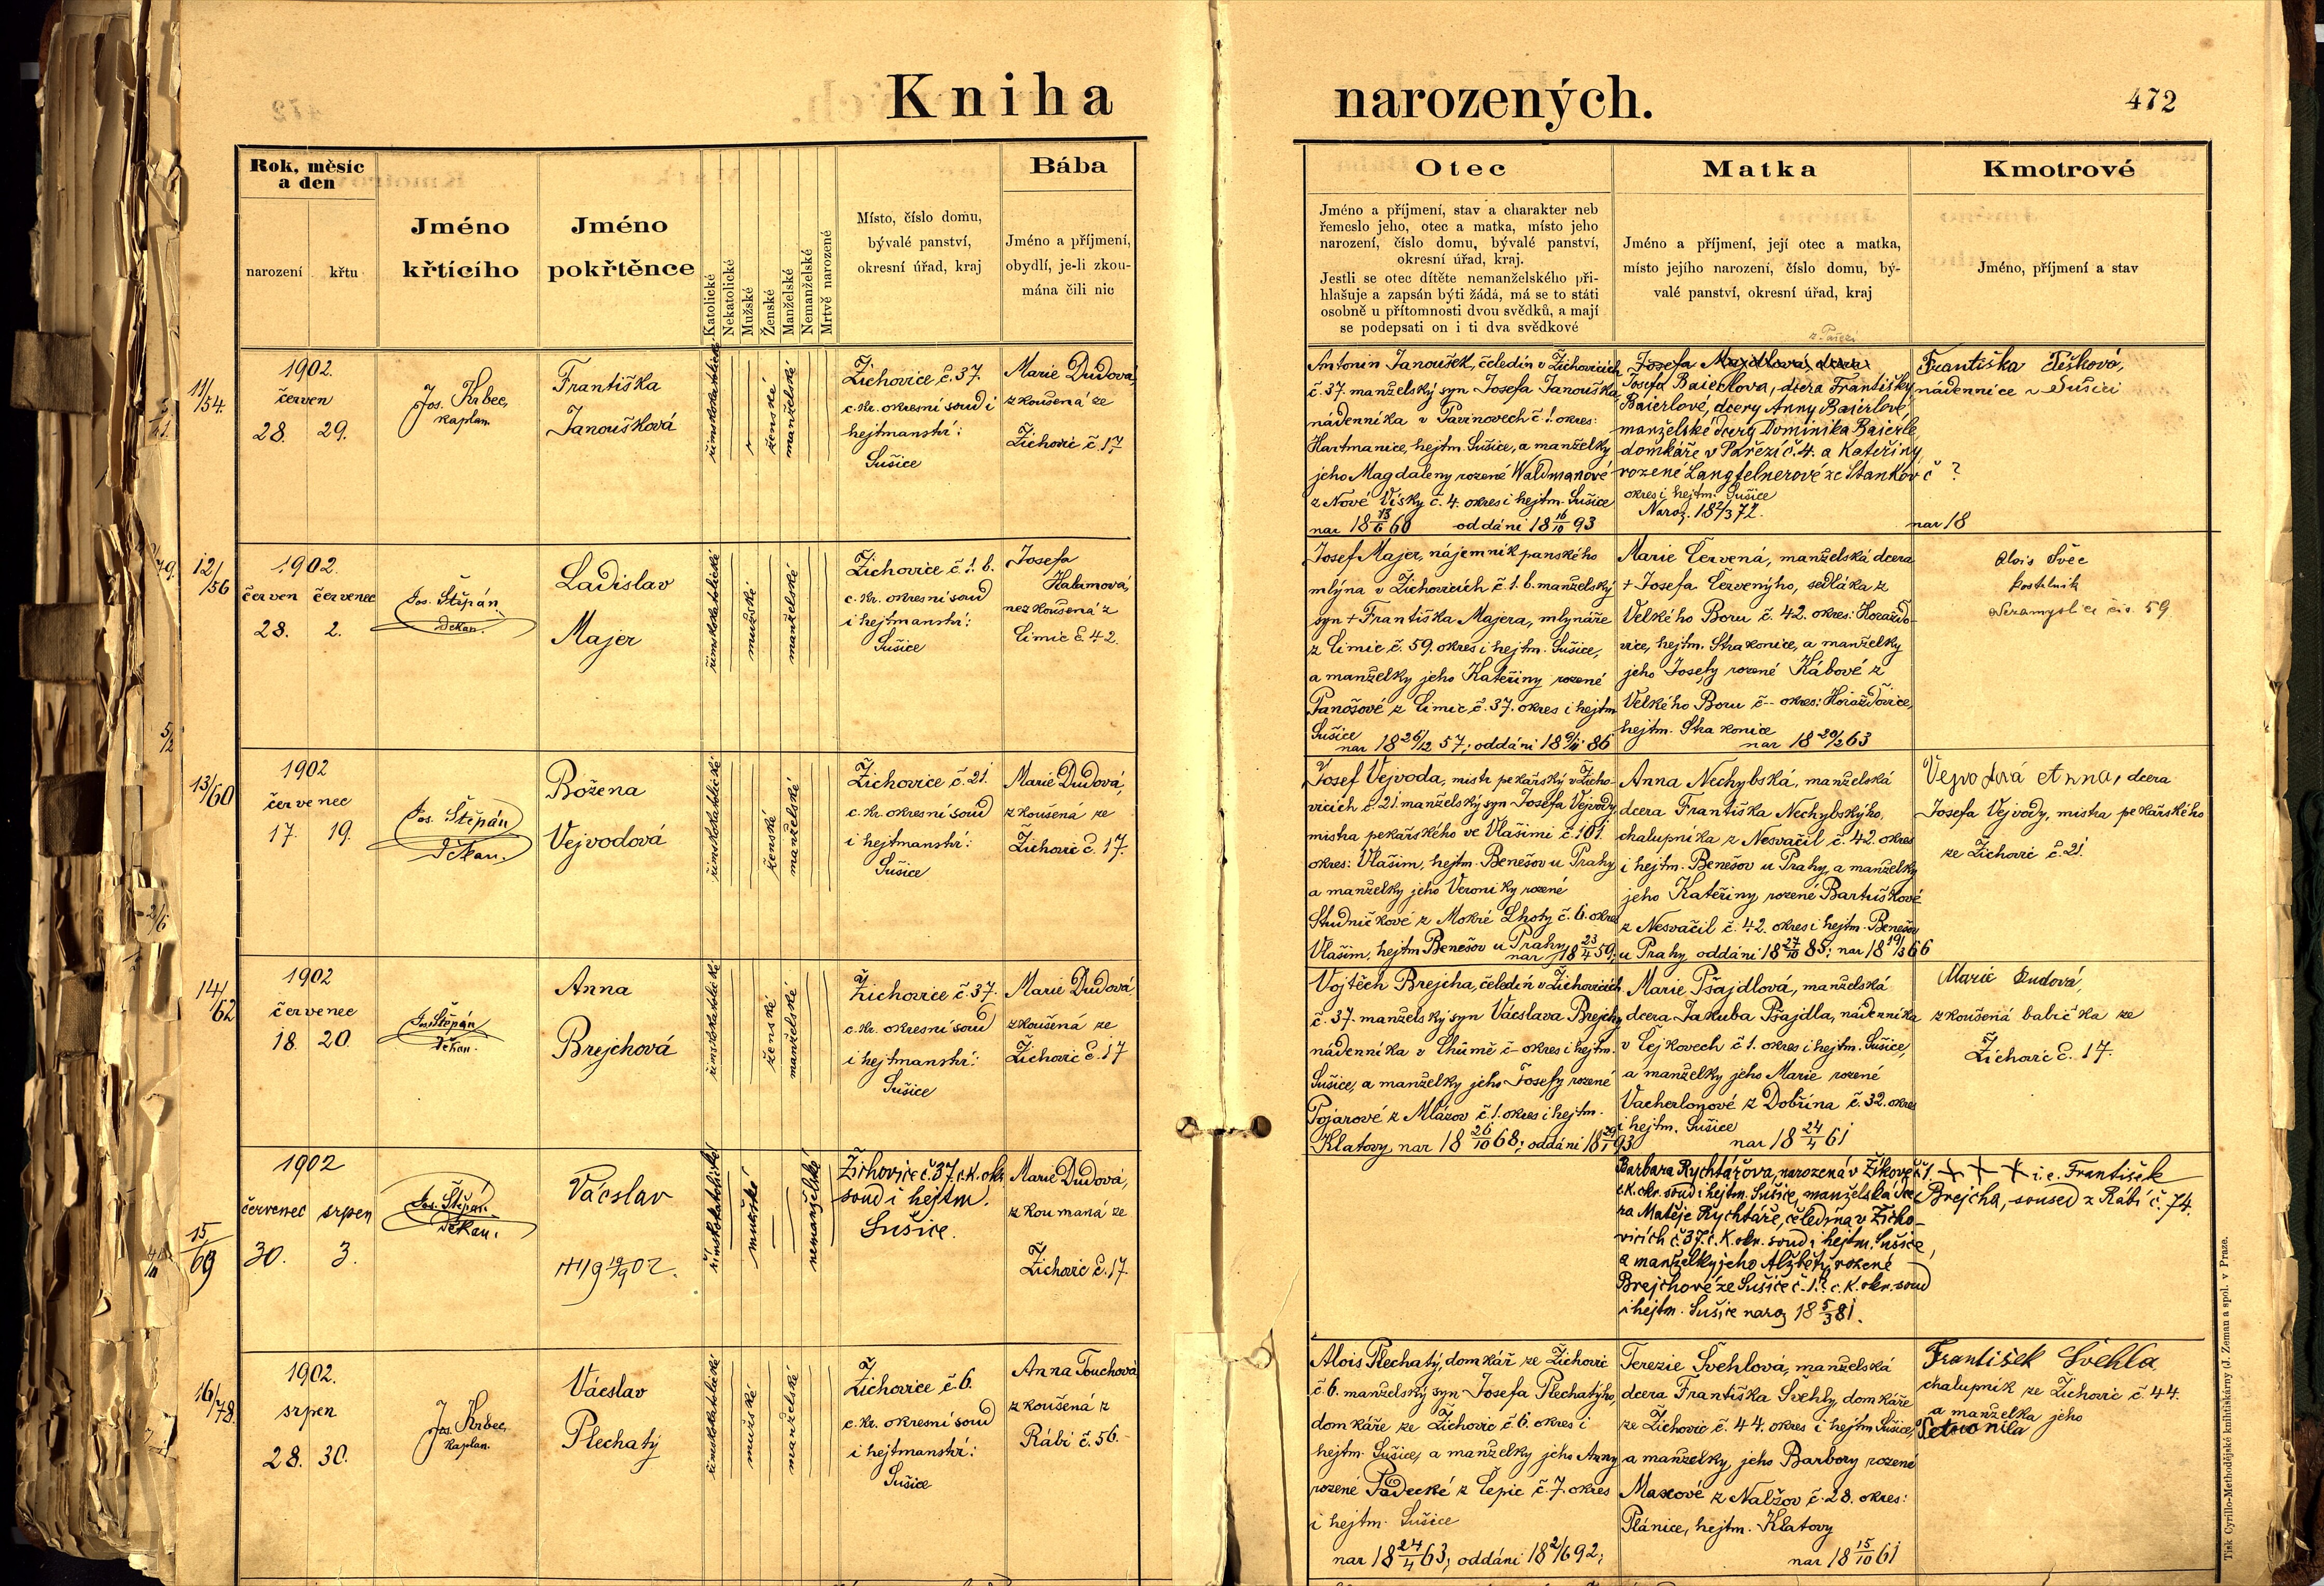 Kniha narozených.
472
Rok, měsíc
a den
narození
křtu
Jméno
křtícího
Jméno
pokřtěnce
Katolické
Nekatolické
Mužské
Ženské
Manželské
Nemanželské
Mrtvě narozené
Místo, číslo domu,
bývalé panství,
okresní úřad, kraj
Bába
Jméno a příjmení,
obydlí, je-li zkou-
mána čili nic
Otec
Jméno a příjmení, stav a charakter neb
řemeslo jeho, otec a matka, místo jeho
narození, číslo domu, bývalé panství,
okresní úřad, kraj.
Jestli se otec dítěte nemanželského při-
hlašuje a zapsán býti žádá, má se to státi
osobně u přítomnosti dvou svědků, a mají
se podepsati on i ti dva svědkové
Matka
Jméno a příjmení, její otec a matka,
místo jejího narození, číslo domu, bý-
valé panství, okresní úřad, kraj
Kmotrové
Jméno, příjmení a stav
11/54.
1902.
červen
28. 29.
Jos. Krbec,
kaplan.
Františka
Janoušková
římskokatolické
ženské
manželské
Žichovice č. 37.
c. kr. okresní soud i
hejtmanství:
Sušice
Marie Dudová,
zkoušená ze
Žichovic č. 17.
Antonín Janoušek, čeledín v Žichovicích
č. 37. manželský syn Josefa Janouška,
nádenníka v Pavinovech č. 1. okres:
Hartmanice, hejtm. Sušice, a manželky
jeho Magdaleny rozené Waldmanové
z Nové Vísky č. 4. okres i hejtm. Sušice
nar 18 13/6 60 oddáni 18 16/10 93
z Pařezí
Josefa Majdlová, dcera
Josefa Baierlova, dcera Františky
Baierlové, dcery Anny Baierlové
manželské dcery Dominika Baierle
domkáře v Pařezí č. 4. a Kateřiny
rozené Langfelnerové ze Stankov č ?
okres i hejtm. Sušice
Naroz. 18 2/3 72.
Františka Tišková,
nádennice v Sušici
nar 18
12/56
1902.
červen červenec
28. 2.
Jos. Štěpán.
Děkan.
Ladislav
Majer
římskokatolické
mužské
manželské
Žichovice č. 1. b.
c. kr. okresní soud
i hejtmanství:
Sušice
Josefa
Halamová,
nezkoušená z
Čimic č. 42.
Josef Majer, nájemník panského
mlýna v Žichovicích č. 1. b. manželský
syn + Františka Majera, mlynáře
z Čimic č. 59. okres i hejtm. Sušice,
a manželky jeho Kateřiny rozené
Panošové z Čimic č. 37. okres i hejtm
Sušice
nar 18 26/12 57; oddáni 18 9/11 86
Marie Červená, manželská dcera
+ Josefa Červenýho, sedláka z
Velkého Boru č. 42. okres: Horažďo-
vice, hejtm. Strakonice, a manželky
jeho Josefy rozené Kábové z
Velkého Boru č – okres: Horažďovice,
hejtm. Strakonice
nar 18 20/2 63
Alois Švec
kostelník
Nezamyslice čís. 59
13/60
1902
červenec
17. 19.
Jos. Štěpán
Děkan.
Božena
Vejvodová
římskokatolické
ženské
manželské
Žichovice č. 21.
c. kr. okresní soud
i hejtmanství:
Sušice
Marie Dudová,
zkoušená ze
Žichovic č. 17.
Josef Vejvoda, mistr pekařský v Žicho-
vicích č. 21. manželský syn Josefa Vejvody,
mistra pekařského ve Vlašimi č. 101.
okres: Vlašim, hejtm. Benešov u Prahy
a manželky jeho Veroniky rozené
Studničkové z Mokré Lhoty č. 6. okres
Vlašim, hejtm Benešov u Prahy
nar 18 23/4 59;
Anna Nechybská, manželská
dcera Františka Nechybskýho,
chalupníka z Nesvačil č. 42. okres
i hejtm. Benešov u Prahy, a manželky
jeho Kateřiny rozené Bartuškové
z Nesvačil č. 42. okres i hejtm. Benešov
u Prahy oddáni 18 27/10 85; nar 18 19/3 66
Vejvodová Anna, dcera
Josefa Vejvody, mistra pekařského
ze Žichovic č. 21.
14/62
1902
červenec
18. 20.
Jos. Štěpán
Děkan.
Anna
Brejchová
římskokatolické
ženské
manželské
Žichovice č. 37.
c. kr. okresní soud
i hejtmanství:
Sušice
Marie Dudová,
zkoušená ze
Žichovic č. 17
Vojtěch Brejcha, čeledín v Žichovicích
č. 37. manželský syn Václava Brejchy
nádenníka v Chlumě č – okres i hejtm.
Sušice, a manželky jeho Josefy rozené
Pojarové z Mlázov č. 1. okres i hejtm.
Klatovy, nar 18 26/10 68; oddáni 18 29/1 93
Marie Pšajdlová, manželská
dcera Jakuba Pšajdla, nádenníka
v Čejkovech č. 1. okres i hejtm. Sušice,
a manželky jeho Marie rozené
Vacherlonové z Dobřína č. 32. okres
i hejtm. Sušice
nar 18 24/4 61
Marie Dudová,
zkoušená babička ze
Žichovic č. 17.
15/69
1902
červenec srpen
30. 3.
Jos. Štěpán.
Děkan.
Vácslav
19 19/9 02.
římskokatolické
mužské
nemanželské
Žichovice č. 37. c. k. okr.
soud i hejtm.
Sušice.
Marie Dudová,
zkoumaná ze
Žichovic č. 17.
Barbara Rychtářova, narozená v Žíkově č. 1.
c. k. okr. soud i hejtm. Sušice, manželská dce-
ra Matěje Rychtáře, čeledína v Žicho-
vicích č. 37. c. k. okr. soud i hejtm. Sušice,
a manželky jeho Alžběty, rozené
Brejchové ze Sušice č. 1.? c. k. okr. soud
i hejtm. Sušice naroz 18 5/3 81.
+ + + i. e. František
Brejcha, soused z Rábí č. 74.
16/78.
1902.
srpen
28. 30.
Jos. Krbec,
kaplan.
Vácslav
Plechatý
římskokatolické
mužské
manželské
Žichovice č. 6.
c. kr. okresní soud
i hejtmanství:
Sušice
Anna Touchová
zkoušená z
Rábí č. 56.
Alois Plechatý, domkář ze Žichovic
č. 6. manželský syn Josefa Plechatýho,
domkáře ze Žichovic č. 6. okres i
hejtm. Sušice, a manželky jeho Anny
rozené Pádecké z Čepic č. 7. okres
i hejtm. Sušice
nar 18 24/4 63; oddáni 18 2/6 92;
Terezie Švehlová, manželská
dcera Františka Švehly domkáře
ze Žichovic č. 44 okres i hejtm Sušice,
a manželky jeho Barbory rozené
Maxové z Nalžov č. 28. okres:
Plánice, hejtm. Klatovy
nar 18 15/10 61
František Švehla
chalupník ze Žichovic č. 44.
a manželka jeho
Petronila
Tisk Cyrillo-Methodějské knihtiskárny (J. Zeman a spol. v Praze.